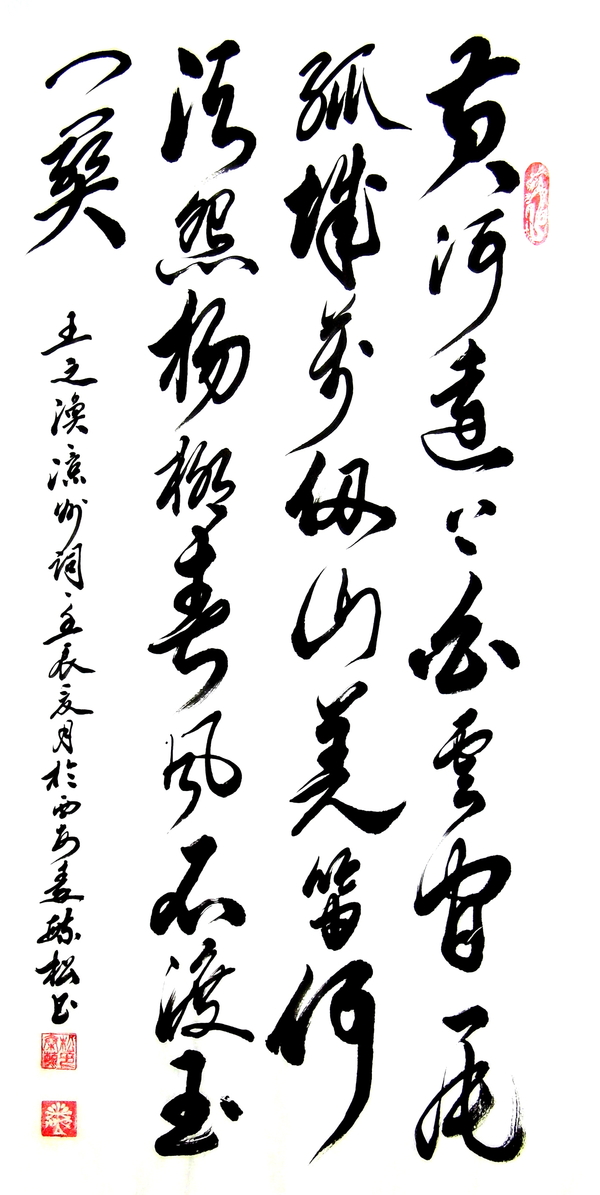 黄河遠上白雲間一片
孤城萬仞山羌笛何
須怨杨柳春風不渡玉
门關
王之渙涼州詞壬辰夏月於西安毓松书